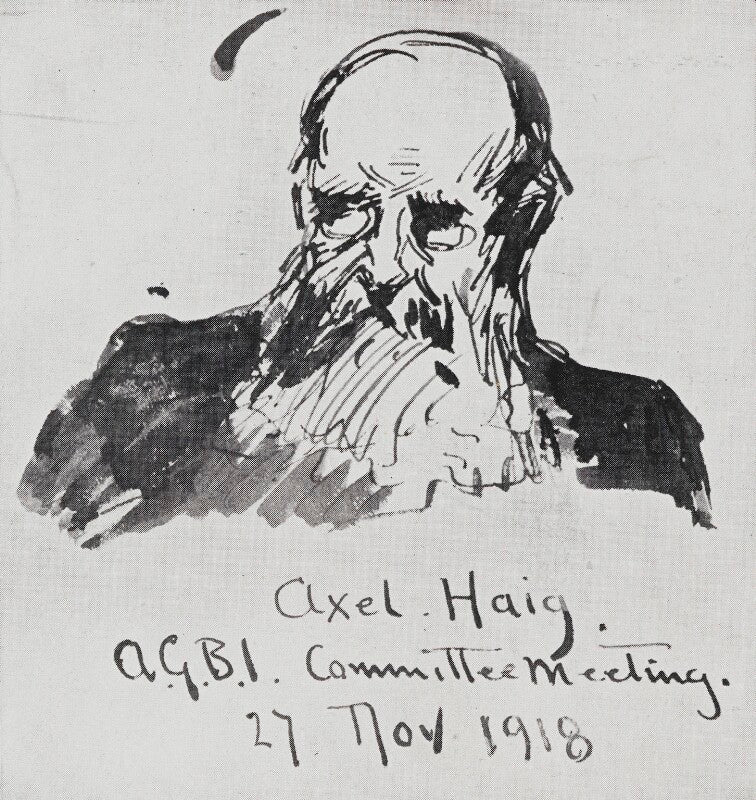 Axel Haig.
A.G.B.I. Committee Meeting.
27 Nov 1918